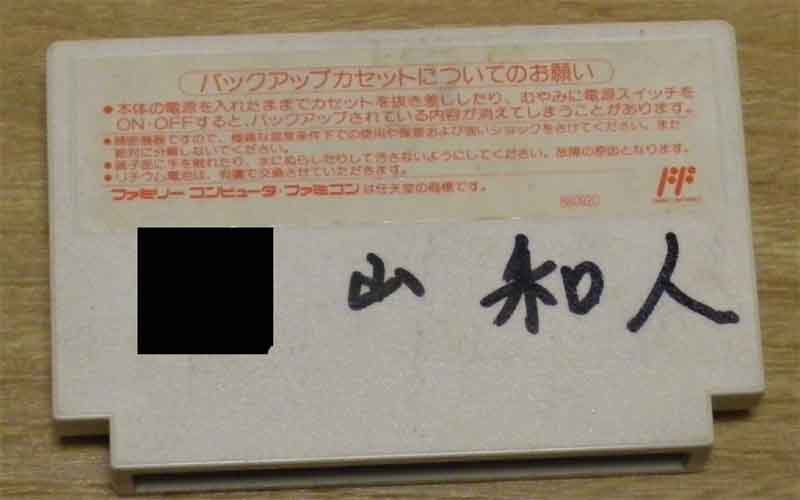 バックアップカセットについてのお願い
●本体の電源を入れたままでカセットを抜き差ししたり、むやみに電源スイッチを
ON・OFFすると、バックアップされている内容が消えてしまうことがあります。
●精密機器ですので、極端な温度条件下での使用や保管および強いショックをさけてください。また
絶対に分解しないでください。
●端子部に手を触れたり、水にぬらしたりして汚さないようにしてください。故障の原因となります。
●リチウム電池は、有償で交換させていただきます。
ファミリーコンピュータ・ファミコンは任天堂の商標です。
山 和人